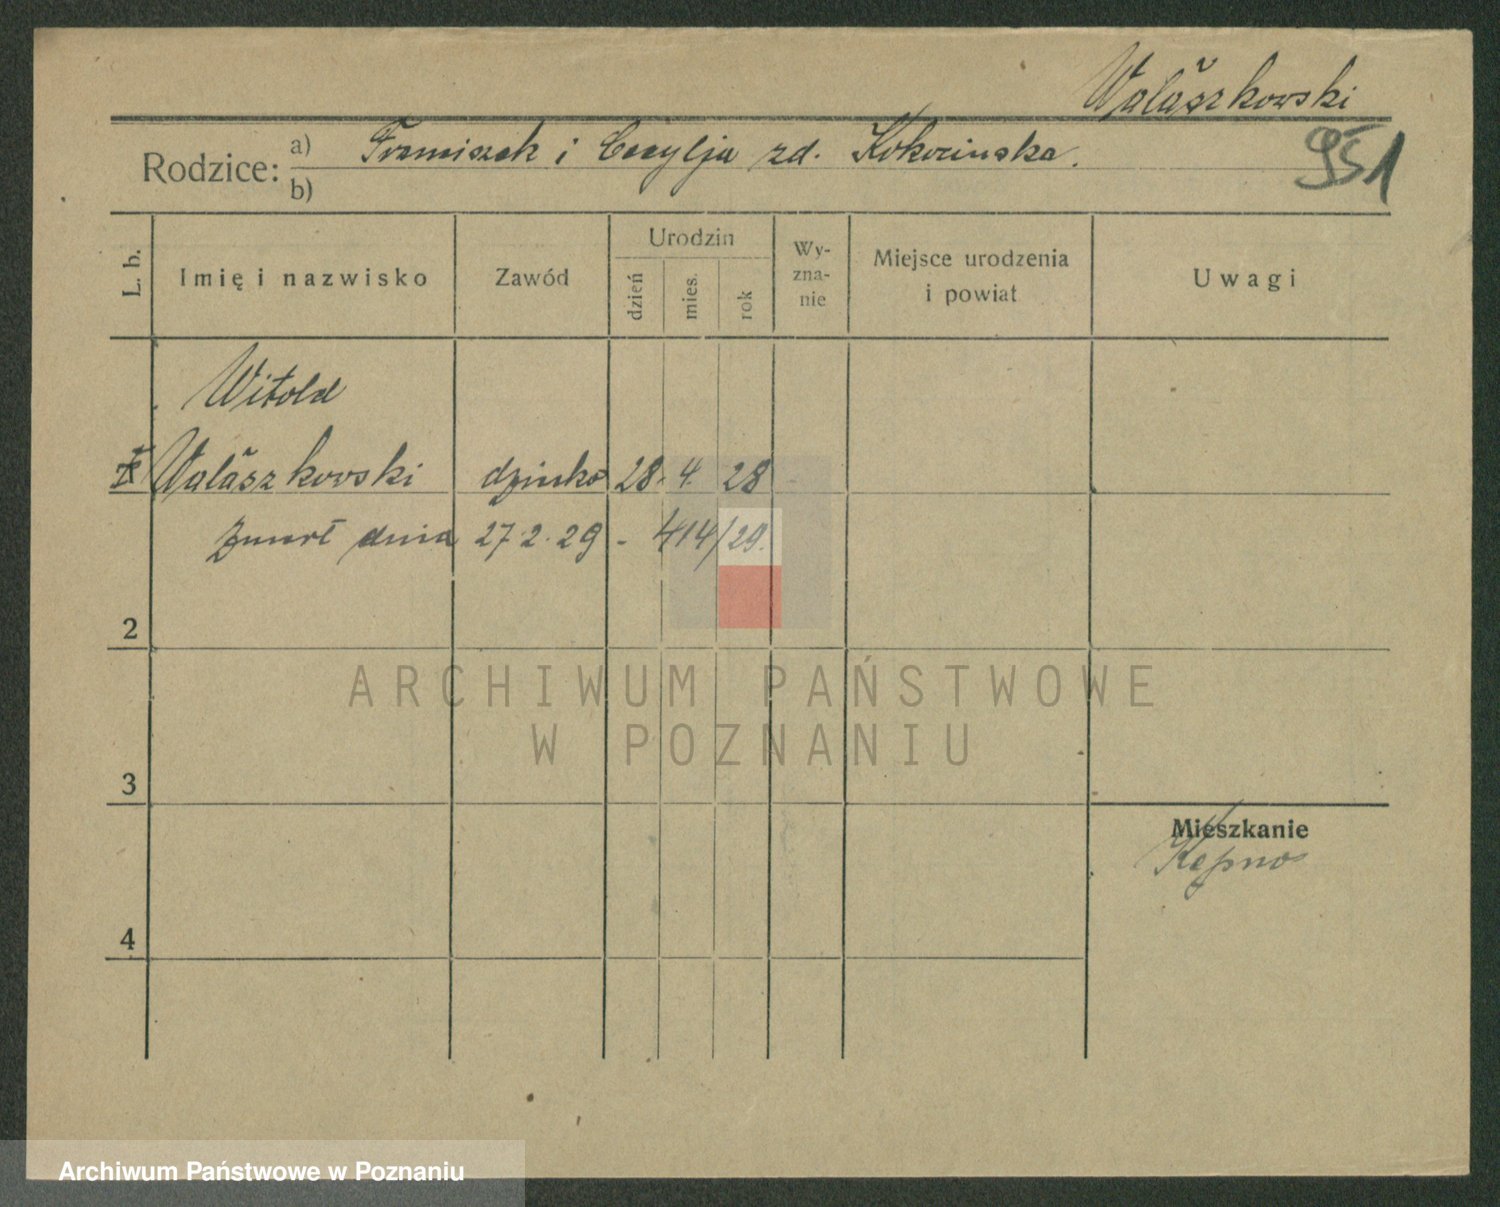 Walaszkowski
951
Rodzice: a) Franciszek i Cecylja zd. Kokocinska.
b)
L. b.
Imię i nazwisko
Zawód
Urodzin
dzień
mies.
rok
Wy-
zna-
nie
Miejsce urodzenia
i powiat
Uwagi
Witold
Walaszkowski dziecko 28. 4. 28 -
zmarł dnia 27.2.29 - 414/29.
2
3
4
Mieszkanie
Kępno
ARCHIWUM PAŃSTWOWE
W POZNANIU
Archiwum Państwowe w Poznaniu